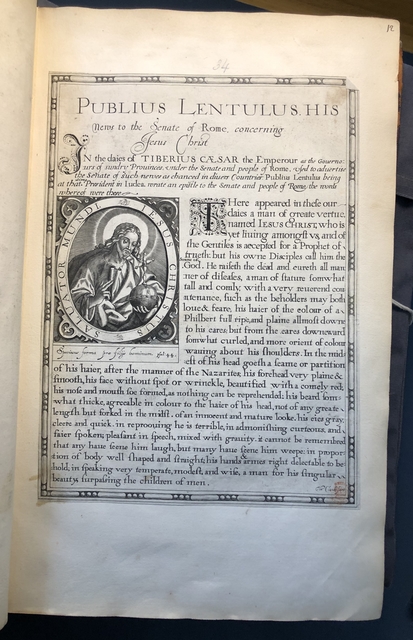 34
PUBLIUS LENTULUS, HIS
News to the Senate of Rome, concerning
Jesus Christ
IN the daies of TIBERIUS CÆSAR the Emperour as the Governo-
urs of sundry Provinces under the Senate and people of Rome, Used to advertise
the Senate of such newes as chanced in divers Countries Publius Lentulus being
at that President in Iudea, wrote an epistle to the Senate and people of Rome, the words
whereof were these
SALVATOR MUNDI IESUS CHRISTUS
Speciosus forma pre filijs hominum. Psal. 44.
THere appeared in these our
daies a man of create vertue,
named IESUS CHRIST, who is
yet liuing amongst vs, and of
the Gentiles is accepted for a Prophet of
trueth: but his owne Disciples call him the
God. He raiseth the dead and cureth all man
ner of diseases, a man of stature somwhat
tall and comly, with a very reuerend cou
ntenance, such as the beholders may both
loue & feare, his haier of the colour of a
Philbert full ripe, and plaine allmost downe
to his eares but from the eares downeward
somwhat curled, and more orient of colour
wauing about his shoulders. In the mid
est of his head goeth a seame or partition
of his haier, after the manner of the Nazarites, his forehead very plaine &
smooth, his face without spot or wrinckle, beautified with a comely red;
his nose and mouth soe formed, as nothing can be reprehended; his beard som-
what thicke, agreeable in colour to the haier of his head, not of any greate
length but forked in the midst. of an innocent and mature looke, his eies gray,
cleere and quick. in reprooving he is terrible, in admonishing curteous, and
faier spoken; pleasant in speech, mixed with gravity. it cannot be remembred
that any haue seene him laugh, but many haue seene him weepe: in propor
tion of body well shaped and straight, his hands & armes right delectable to be
hold, in speaking very temperate, modest, and wise, a man for his singular
beauty, surpassing the children of men.